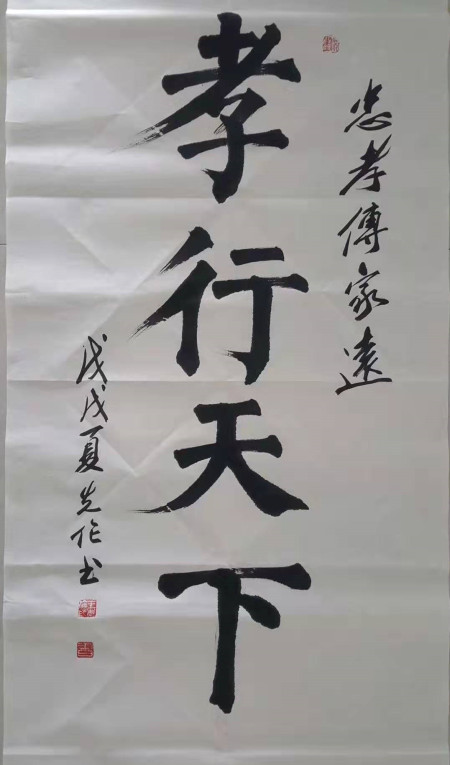 忠孝傳家遠
孝行天下
戊戌夏先作书